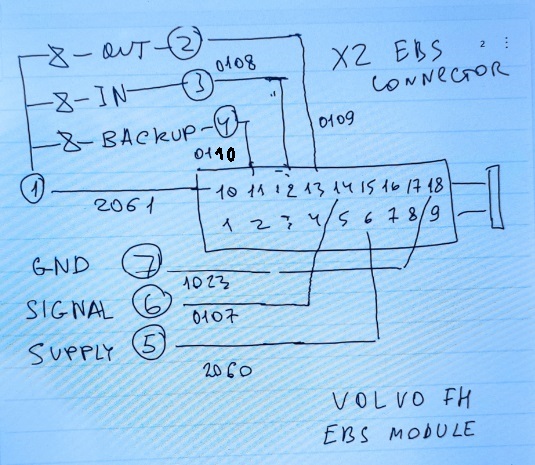 8-OUT-2
X2 EBS
CONNECTOR
8-IN 3
0108
8-BACKUP-4
0109
0110
1
2061
10 11 12 13 14 15 16 17 18
1 2 3 4 5 6 7 8 9
GND 7
1023
SIGNAL 6
0107
SUPPLY 5
2060
VOLVO FH
EBS MODULE